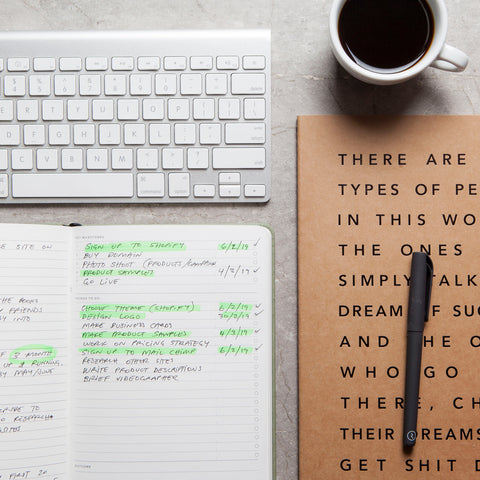 THERE ARE
TYPES OF PE
IN THIS WO
THE ONES
SIMPLY TALK
DREAM OF SU
AND THE O
WHO GO
THERE, CH
THEIR DREAMS
GET SHIT D
E SITE ON
SIGN UP TO SHOPIFY 6/2/19
BUY DOMAIN
PHOTO SHOOT (PRODUCTS/CAMPAIGN
PRODUCT SAMPLES 4/2/19
GO LIVE
THINGS TO DO
CHOOSE THEME (SHOPIFY)
DESIGN LOGO
MAKE BUSINESS CARDS
MAKE PRODUCT SAMPLES
WORK ON PRICING STRATEGY
SIGN UP TO MAIL CHIMP
RESEARCH OTHER SITES
WRITE PRODUCT DESCRIPTIONS
BRIEF VIDEOGRAPHER
THE BOOKS
FRIENDS
INTO
OF 3 MONTH
UP & RUNNING
BY MAY/JUNE
TO
RESEARCH
FIRST 20
delete
return
shift
command
option